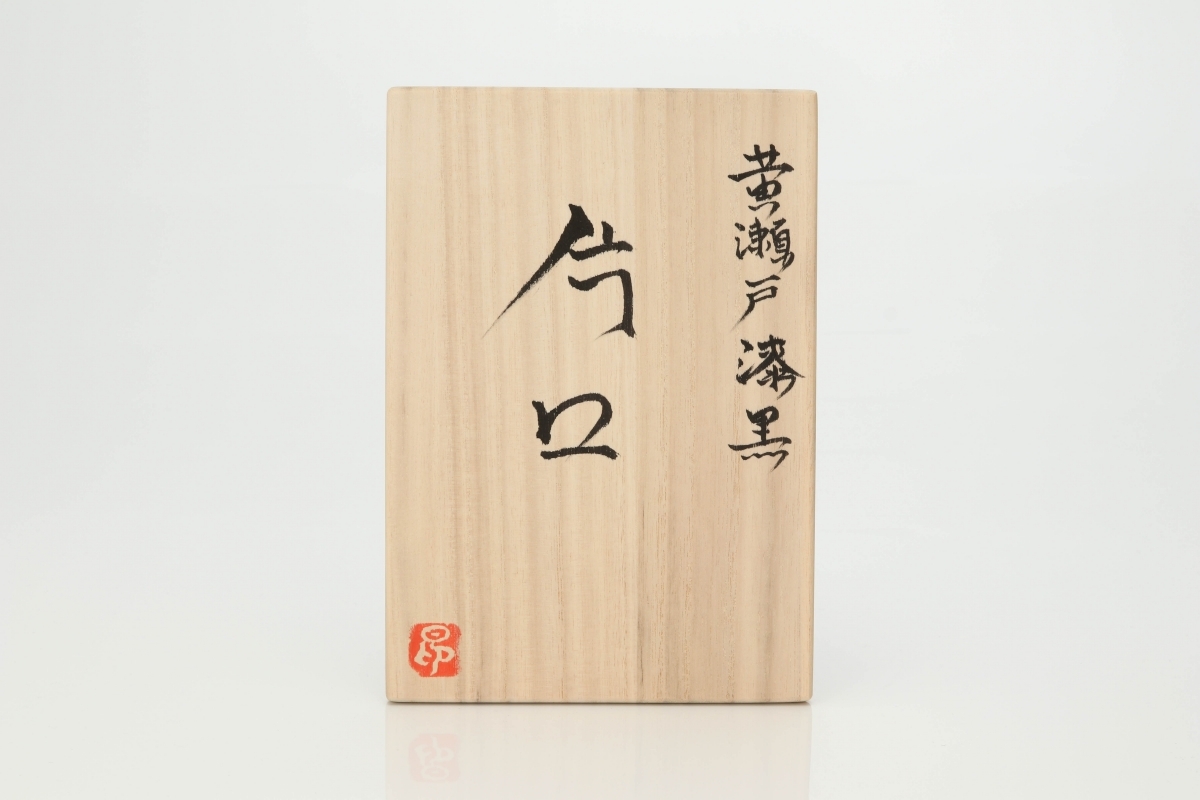 黄瀬戸漆黒
片口
昂